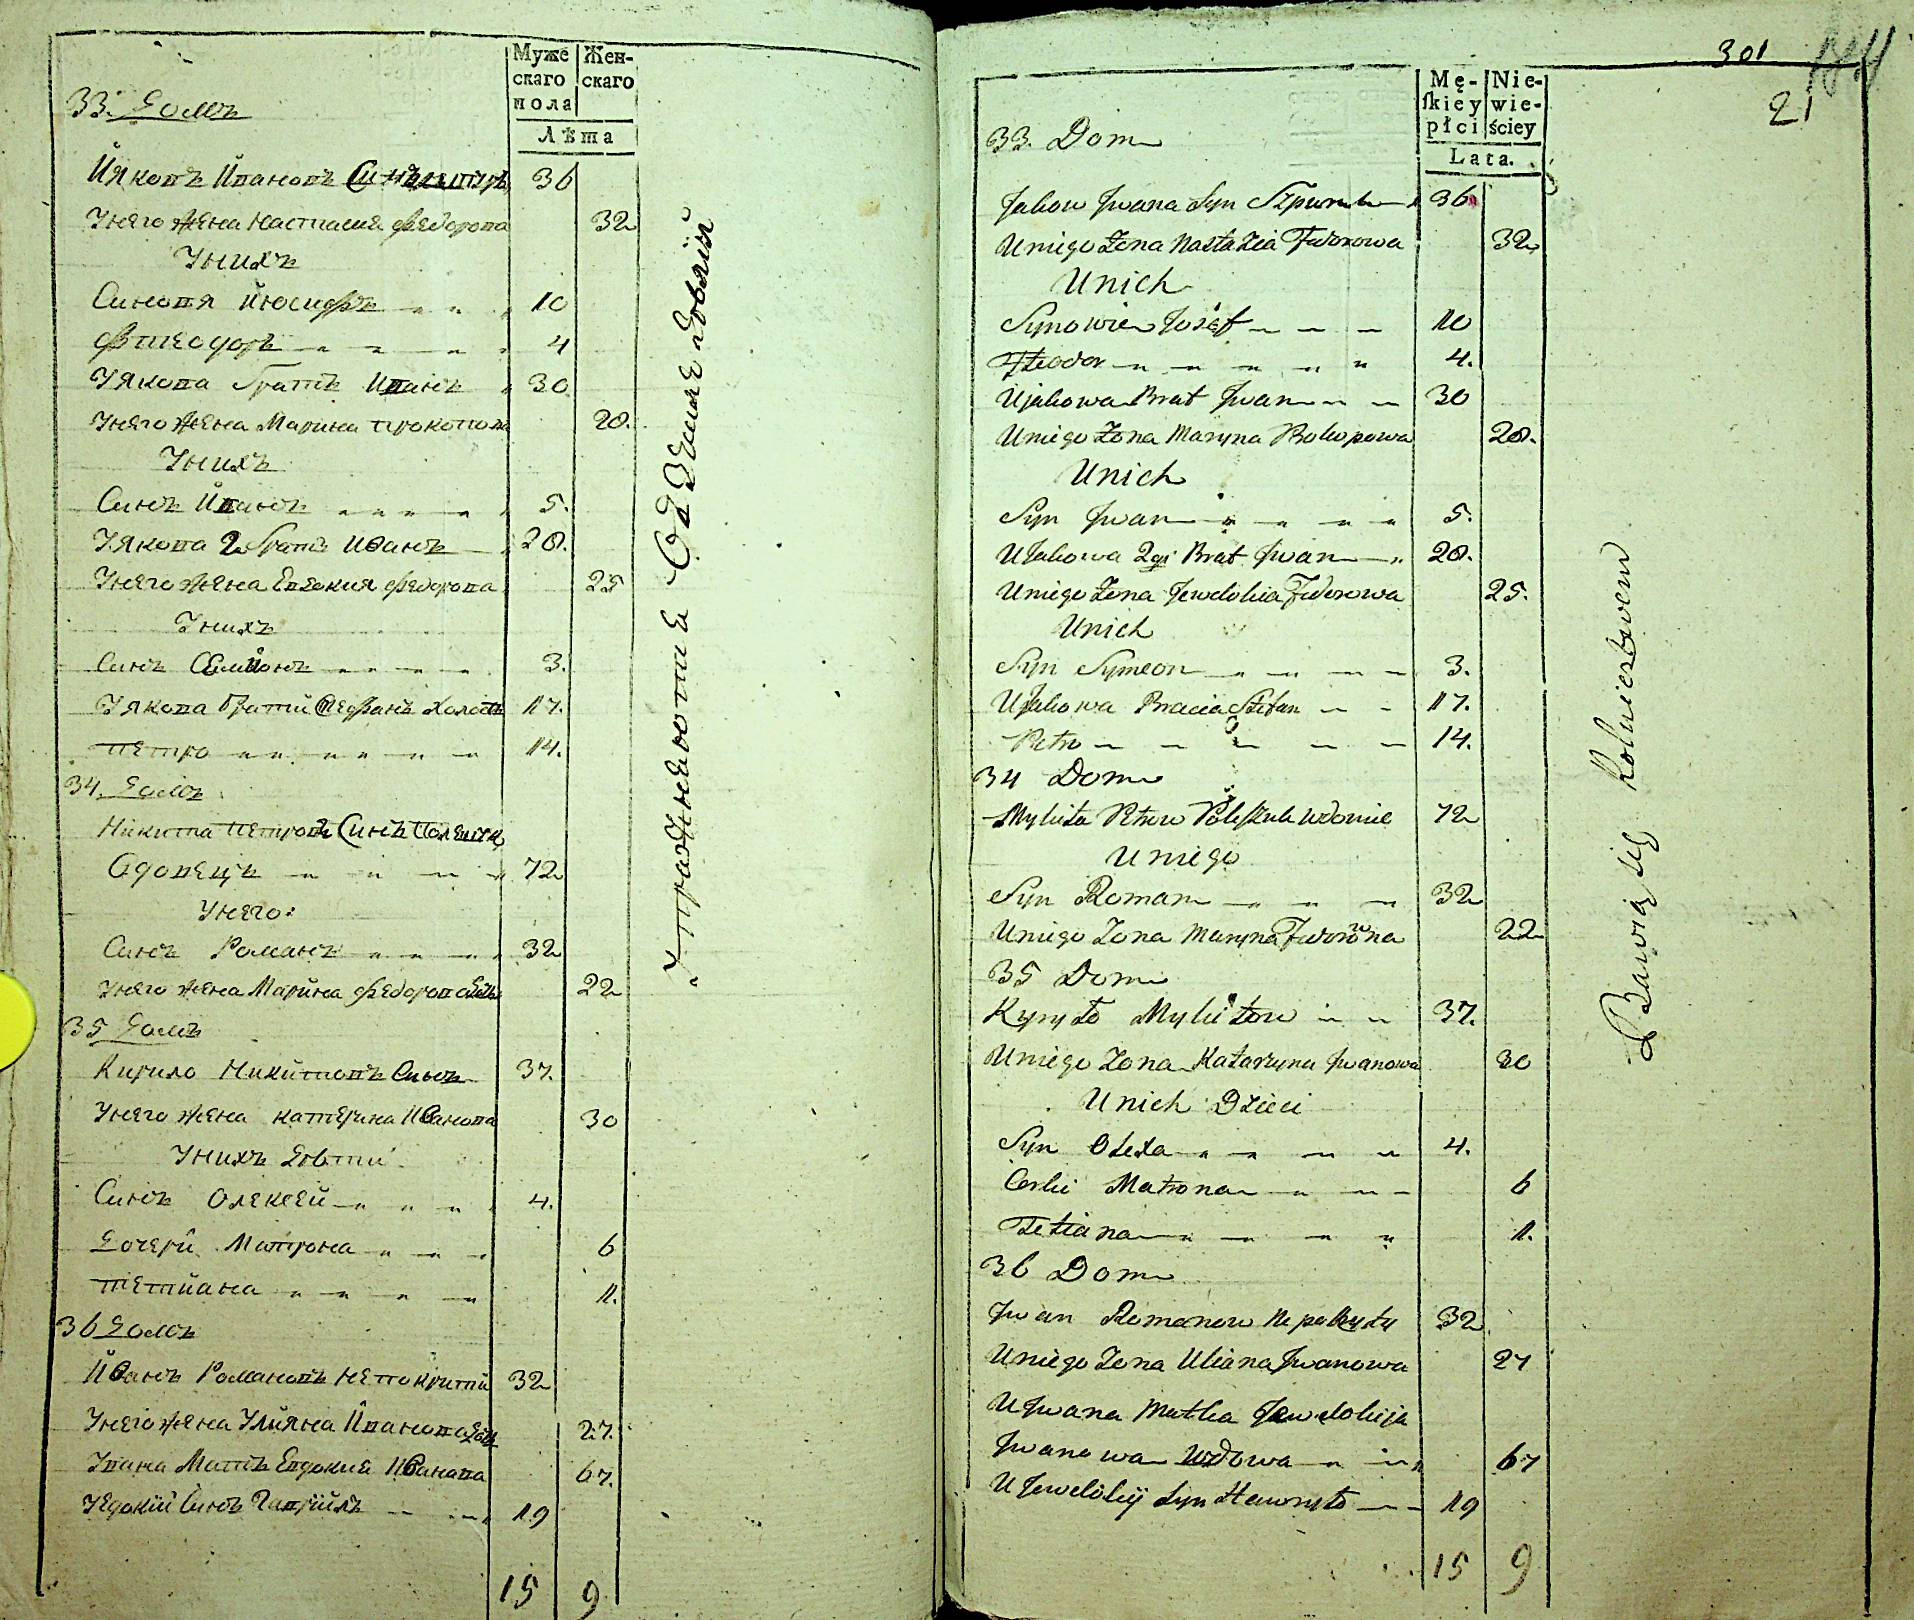 Муже Жен-
скаго скаго
пола
Лѣта
33. Домъ
Йяковъ Йвановъ Синъ 36
Унего жена Настасия Федорова 32
Унихъ
Синовя Йюсифъ 10
Фтеодоръ 4
Уякова братъ Иванъ 30
Унего жена Марина Прокопова 28.
Унихъ
Синъ Йванъ 5.
Уякова 2 братъ Иванъ 28.
Унего жена Евдокия Федорова 25
Унихъ
Синъ Семйонъ 3.
Уякова братй Стефанъ холостъ 17.
Петро 14.
34. Домъ
Никита Петровъ Синъ
Вдовецъ 72
Унего:
Синъ Романъ 32
Унего жена Марйна 22
35 Домъ
Кирило Никйтовъ Синъ 37.
Унего жена Катерина Иванова 30
Унихъ дѣти
Синъ Олексей 4.
Дочерй Матрона 6
Тетйана 1.
36 Домъ
Йванъ Романовъ Непокритй 32
Унего жена Улйяна 27.
Увана Матъ Евдокия Иванова 67.
Синъ Гаврйилъ 19
15 9
301
21
Mę- Nie-
ſkiey wie-
płci ściey
Lata.
33. Dom
Jakow Jwana Syn 36
Uniego Żona Nastazia Fedorowa 32
Unich
Synowie Josef 10
Fteodor 4.
Ujakowa Brat Jwan 30
Uniego Żona Maryna Prokopowa 28.
Unich
Syn Jwan 5.
UJakowa 2gi Brat Jwan 28.
Uniego Żona Jewdokia Fedorowa 25.
Unich
Syn Symeon 3.
UJakowa Bracia Stefan 17.
Petro 14.
34 Dom
Mykita Petrow Poleszuk wdowiec 72
Uniego
Syn Roman 32
Uniego Żona Maryna Fedorowna 22
35 Dom
Kyryło Mykitow 37.
Uniego Żona Katarzyna Jwanowa 30
Unich Dzieci
Syn Olexa 4.
Corki Matrona 6
Tetiana 1.
36 Dom
Jwan Romanow Nepokryty 32
Uniego Żona Uliana Jwanowa 27
UJwana Matka Jewdokija
Jwanowa Wdowa 67
UJewdokij Syn Hawryło 19
15 9
Bawią się Rolnictwem